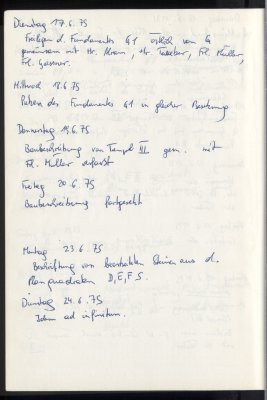 Dienstag 17.6.75
Freilegen d. Fundaments G1 östlich von G
gemeinsam mit Hr. Abram, Hr. Tascher, Frl. Müller,
Frl. Gassner.
Mittwoch 18.6.75
Putzen des Fundaments G1 in gleicher Besetzung
Donnerstag 19.6.75
Baubeschreibung von Tempel III gem. mit
Frl. Müller erfasst
Freitag 20.6.75
Baubeschreibung fortgesetzt
Montag 23.6.75
Beschriftung von bearbeiteten Steinen aus d.
Planquadraten D, E, F, S.
Dienstag 24.6.75
Idem ad infinitum.